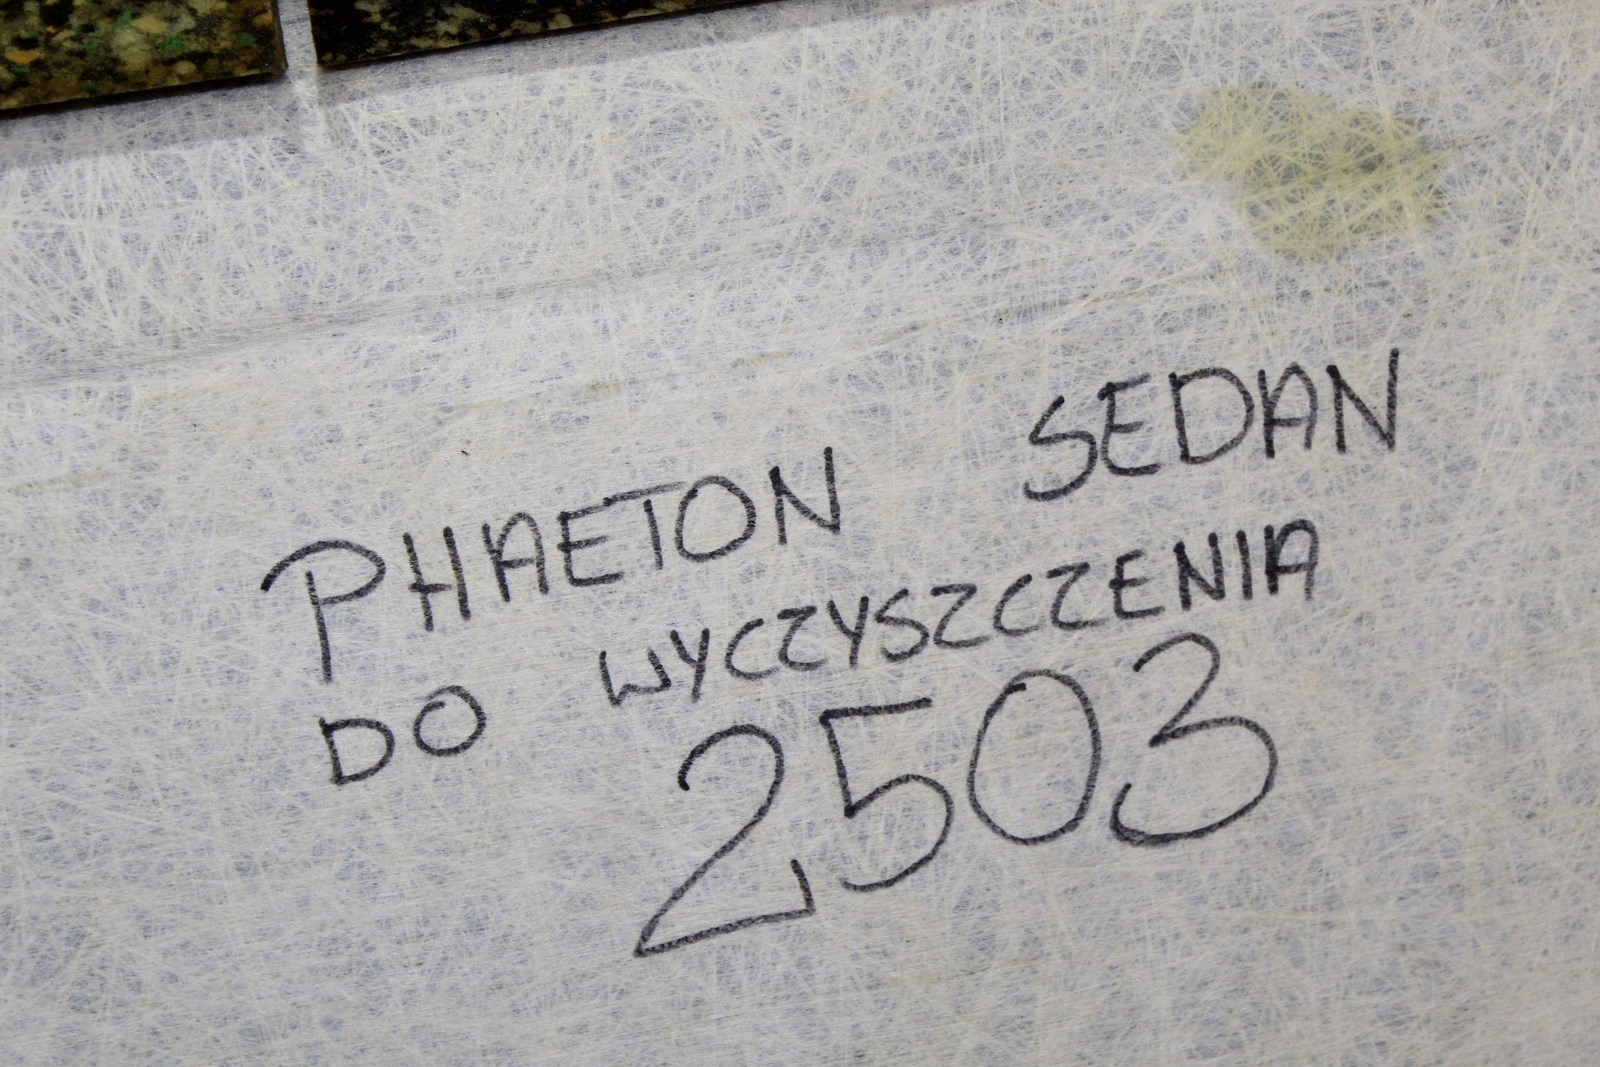 PHAETON SEDAN
DO WYCZYSZCZENIA
2503